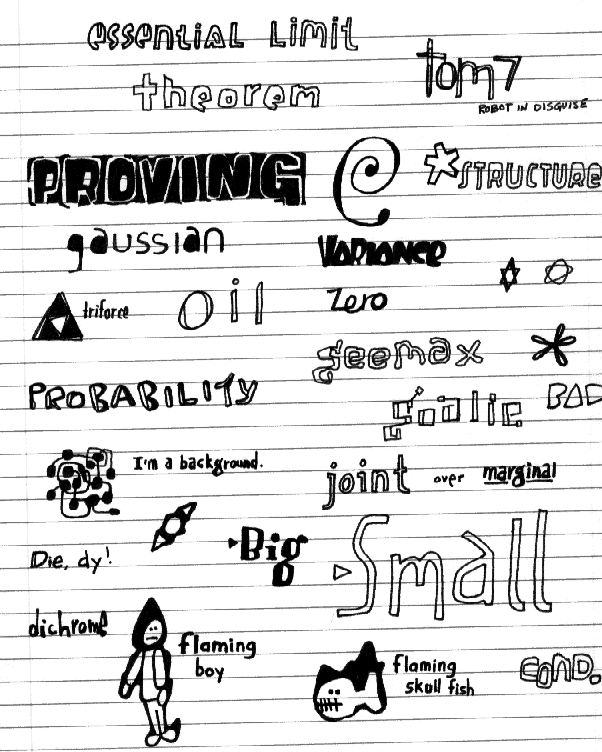 essential Limit
theorem
tom7
ROBOT IN DISGUISE
PROVING
e
*STRUCTURE
gaussian
VARIANCE
triforce
oil
Zero
geemax
PROBABILITY
goalie
BAD
I'm a background.
joint over marginal
Die, dy!
Big
Small
dichrome
flaming
boy
flaming
skull fish
COND.